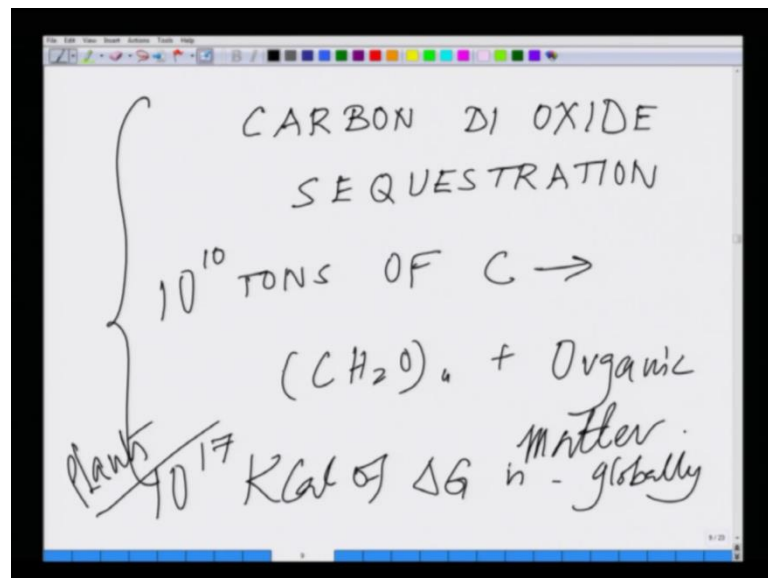 File Edit View Insert Actions Tools Help
CARBON DI OXIDE
SEQUESTRATION
10^10 TONS OF C →
(CH2O)n + Organic
matter.
Plants
10^17 KCal of ΔG in - globally
9/23
9